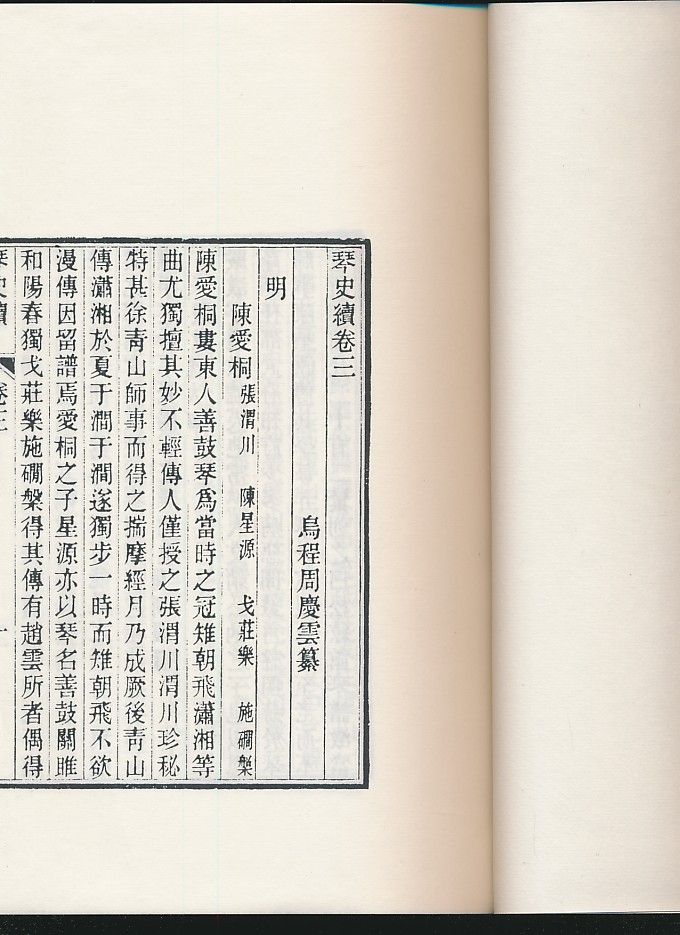 琴史續卷三
烏程周慶雲纂
明
陳愛桐 張渭川 陳星源 戈莊樂 施磵槃
陳愛桐婁東人善鼓琴爲當時之冠雉朝飛瀟湘等
曲尤獨擅其妙不輕傳人僅授之張渭川渭川珍秘
特甚徐靑山師事而得之揣摩經月乃成厥後靑山
傳瀟湘於夏于澗于澗遂獨步一時而雉朝飛不欲
漫傳因留譜焉愛桐之子星源亦以琴名善鼓關雎
和陽春獨戈莊樂施磵槃得其傳有趙雲所者偶得
琴史續 卷三 一